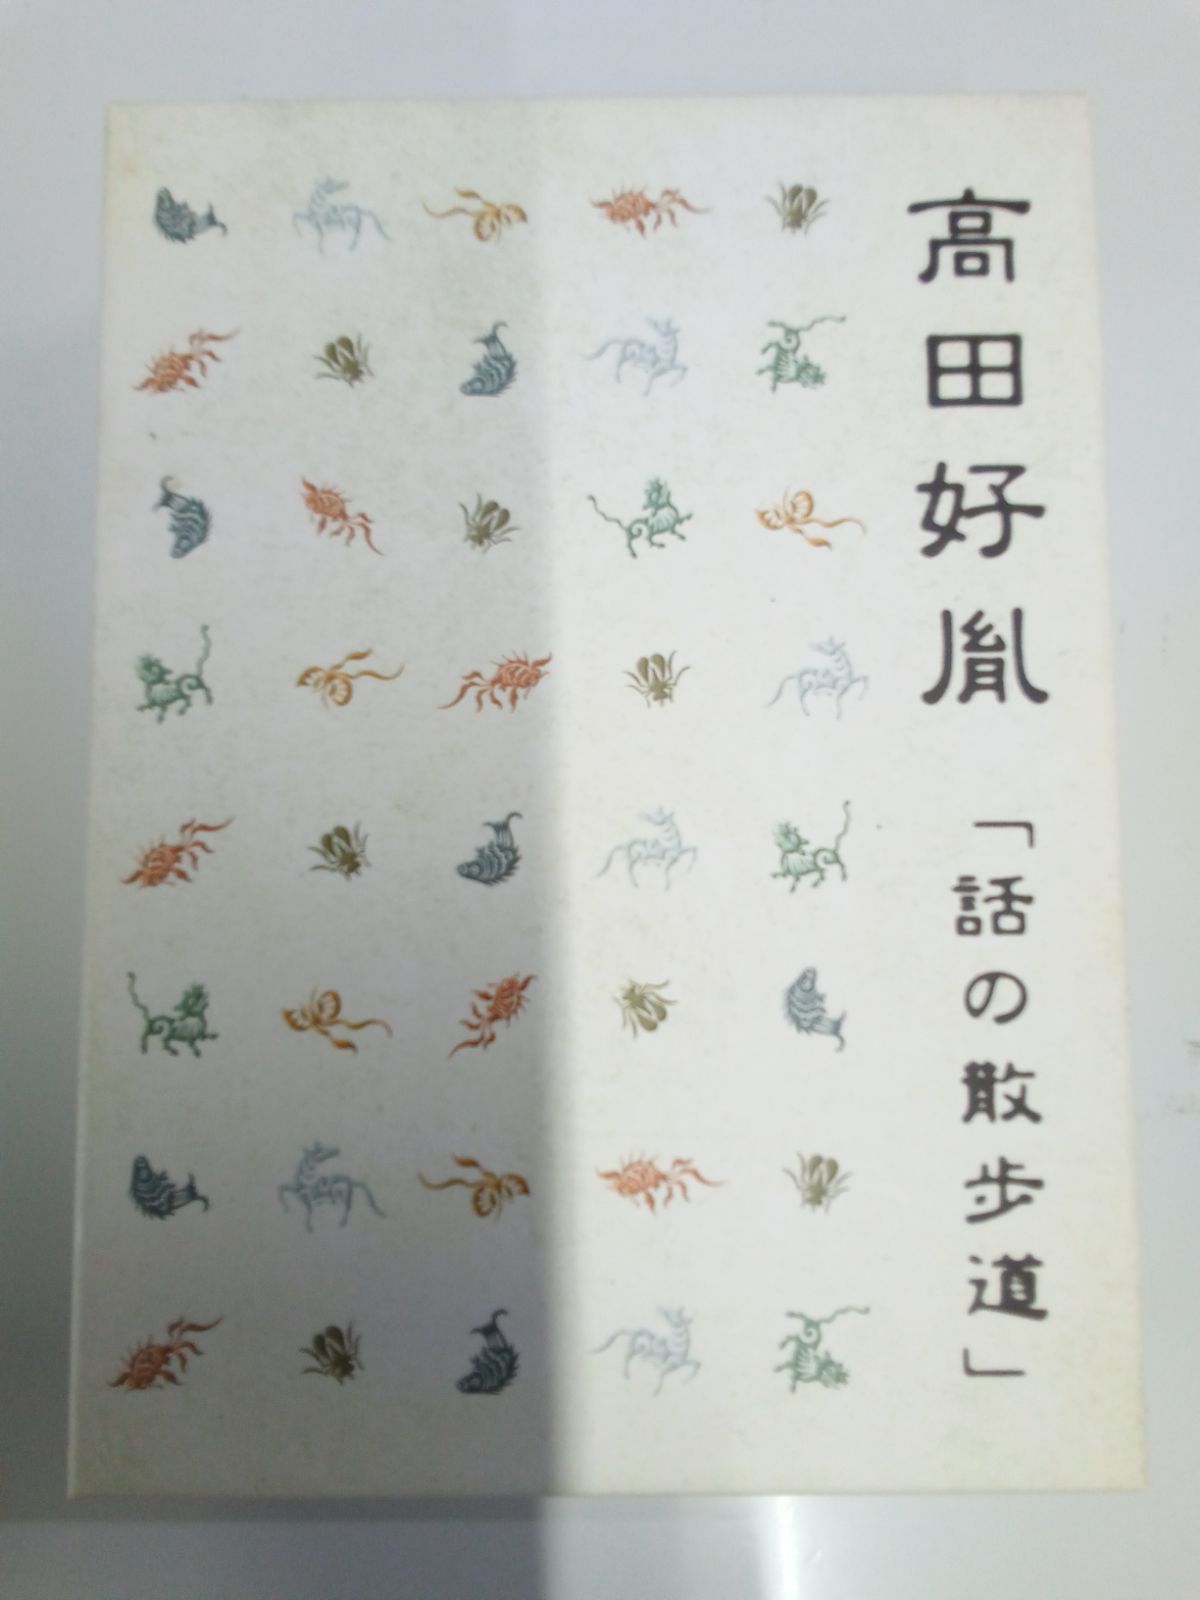 高田好胤「話の散歩道」